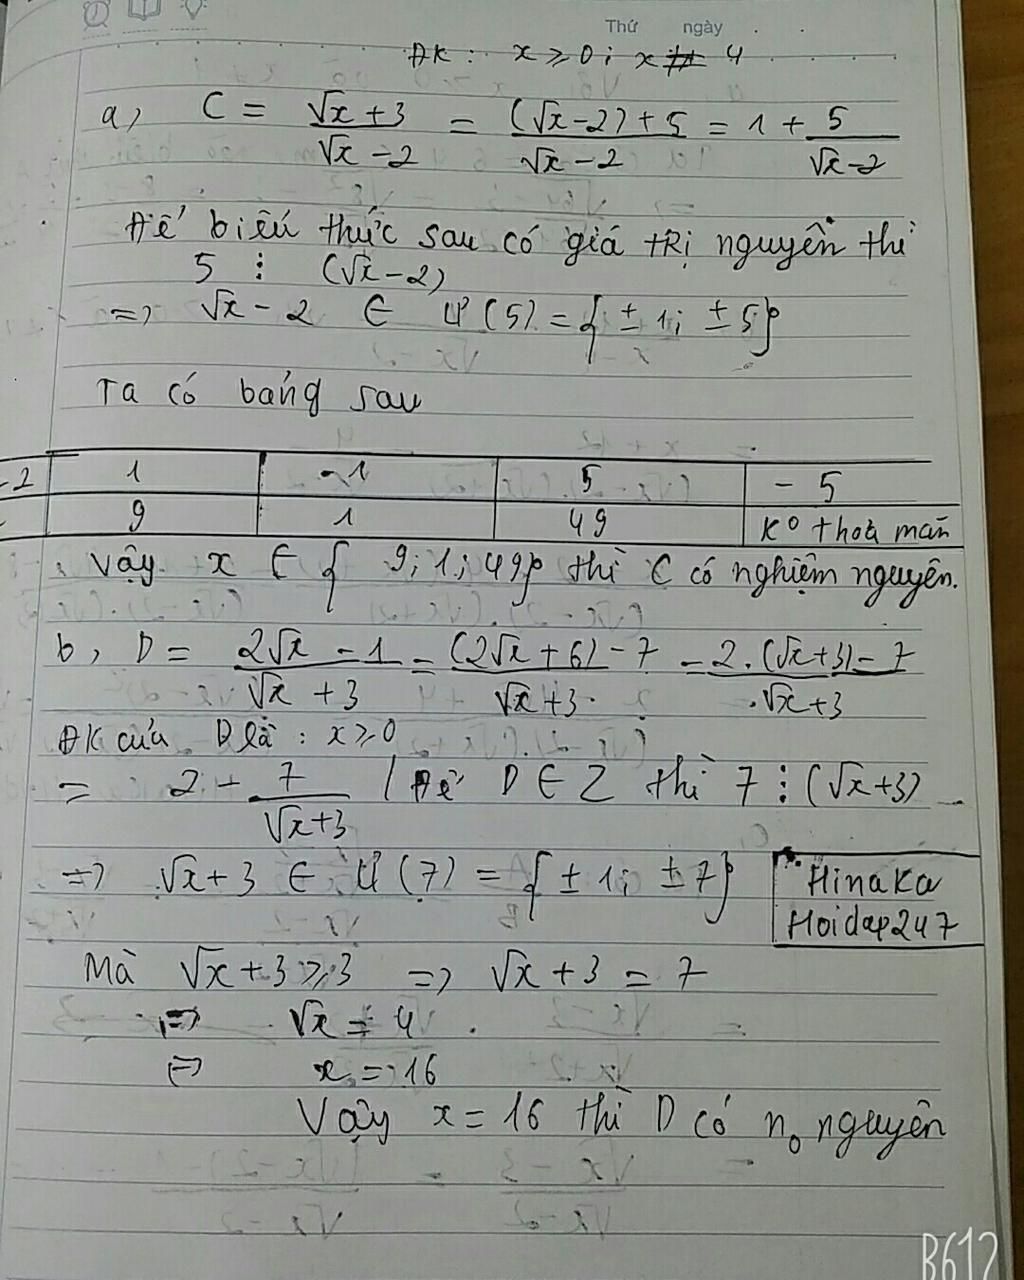 Thứ ngày
ĐK : x ≥ 0 ; x ≠ 4
a, C = (√x + 3)/(√x - 2) = ((√x - 2) + 5)/(√x - 2) = 1 + 5/(√x - 2)
Để biểu thức sau có giá tRị nguyên thì
5 ⋮ (√x - 2)
=> √x - 2 ∈ Ư (5) = { ± 1; ± 5}
Ta có bảng sau
-2 | 1 | -1 | 5 | - 5
9 | 1 | 49 | K° thoả mãn
Vậy x ∈ { 9; 1; 49} thì C có nghiệm nguyên.
b, D = (2√x - 1)/(√x + 3) = ((2√x + 6) - 7)/(√x + 3) = (2.(√x + 3) - 7)/(√x + 3)
ĐK của D là : x ≥ 0
= 2 - 7/(√x + 3) / Để D ∈ Z thì 7 ⋮ (√x + 3)
=> √x + 3 ∈ Ư (7) = { ± 1; ± 7}
Hinaka
Hoidap247
Mà √x + 3 ≥ 3 => √x + 3 = 7
=> √x = 4
=> x = 16
Vậy x = 16 thì D có n₀ nguyên
B612